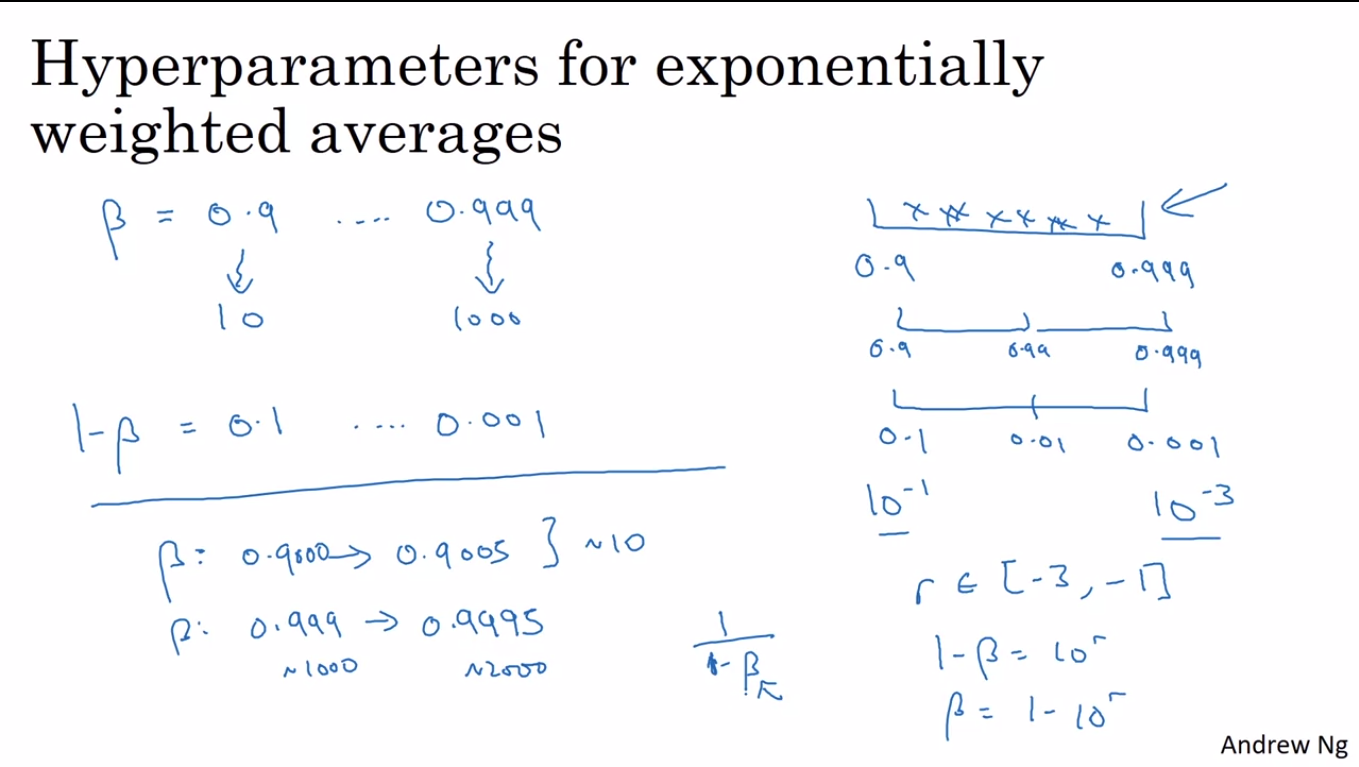 Hyperparameters for exponentially
weighted averages
β = 0.9 .... 0.999
10
1000
1-β = 0.1 .... 0.001
β: 0.9000 → 0.9005 } ~10
β: 0.999 → 0.9995
~1000 ~2000
1
1-β
0.9 0.999
0.9 0.99 0.999
0.1 0.01 0.001
10⁻¹ 10⁻³
r ∈ [-3, -1]
1-β = 10ʳ
β = 1-10ʳ
Andrew Ng